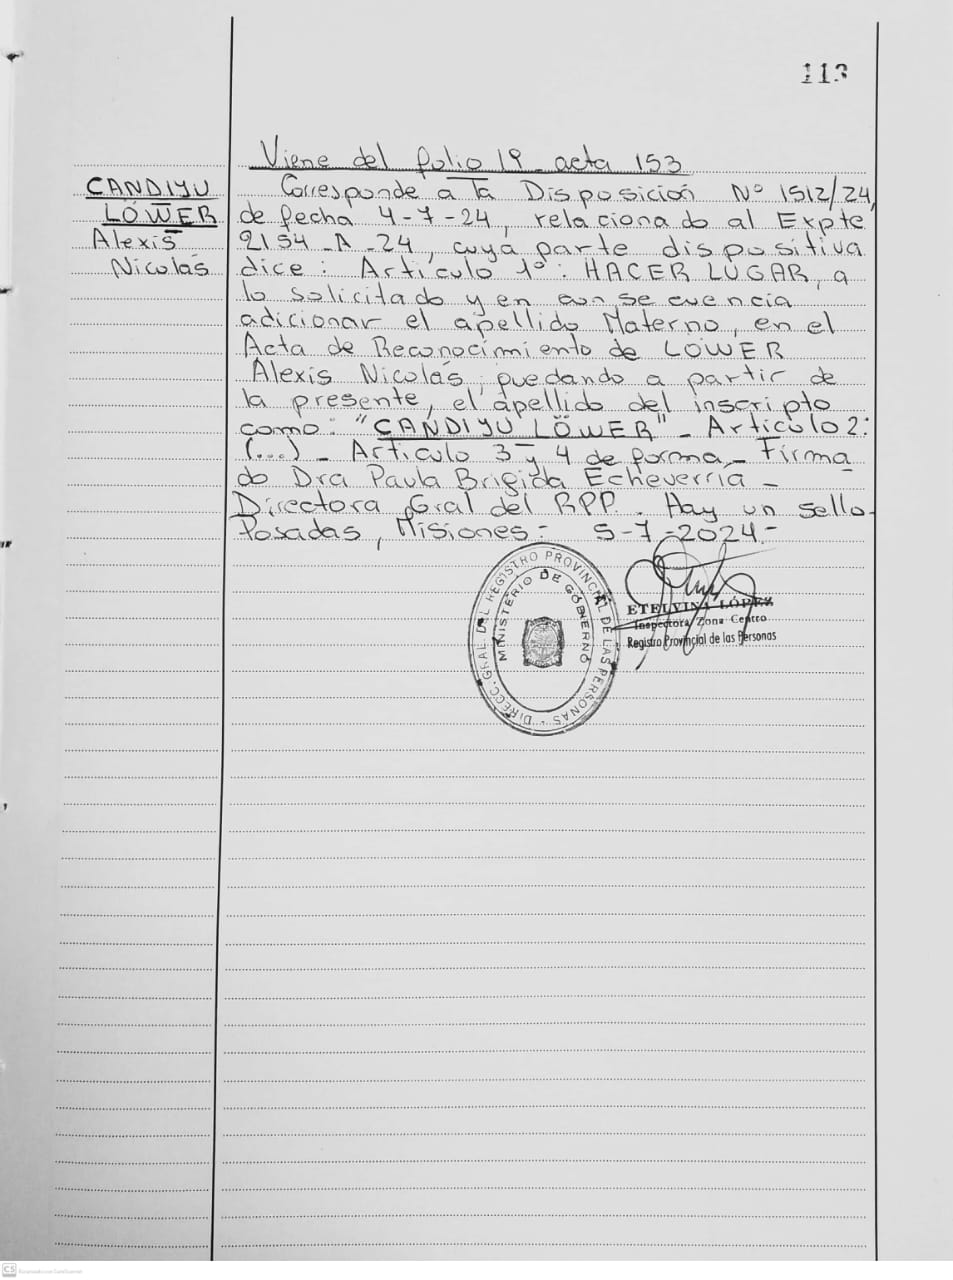 113
Viene del folio 19 acta 153
CANDIYU
LÖWER
Alexis
Nicolás
Corresponde a la Disposición Nº 1512/24,
de fecha 4-7-24, relacionado al Expte
2154-A-24, cuya parte dispositiva
dice: Artículo 1º: HACER LUGAR, a
lo solicitado y en consecuencia
adicionar el apellido Materno, en el
Acta de Reconocimiento de LÖWER
Alexis Nicolás, quedando a partir de
la presente, el apellido del inscripto
como: "CANDIYU LÖWER" - Artículo 2:
(...) - Artículo 3 y 4 de forma - Firma
do Dra Paula Brigida Echeverría -
Directora Gral del RPP. Hay un sello-
Posadas, Misiones - 5-7-2024.-
DIRECC. GRAL. DEL REGISTRO PROVINCIAL DE LAS PERSONAS
MINISTERIO DE GOBIERNO
ETELVINA LÓPEZ
Inspectora Zona Centro
Registro Provincial de las Personas
CS